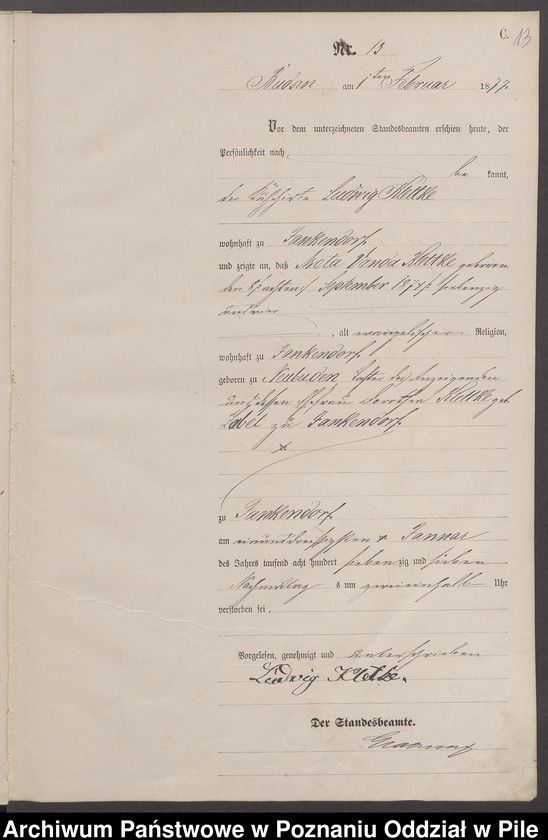 C.
13
Nr. 13
Budsin am 1ten Februar 1877
Vor dem unterzeichneten Standesbeamten erschien heute, der
Persönlichkeit nach,
be kannt,
der Ludwig Klettke
wohnhaft zu Jankendorf
und zeigte an, daß Meta Wanda Klettke geboren
den 8/: achten :/ September 1874/: siebenzig
und vier
, alt evangelischer Religion,
wohnhaft zu Jankendorf
geboren zu Neubuden, Tochter des Anzeigenden
und dessen Ehefrau Dorothea Klettke geb.
Zabel zu Jankendorf
de
zu Jankendorf
am einunddreißigsten Januar
des Jahres tausend acht hundert sieben zig und sieben
Nachmittag s um zweieinhalb Uhr
verstorben sei.
Vorgelesen, genehmigt und unterschrieben
Ludwig Klettke.
Der Standesbeamte.
Archiwum Państwowe w Poznaniu Oddział w Pile